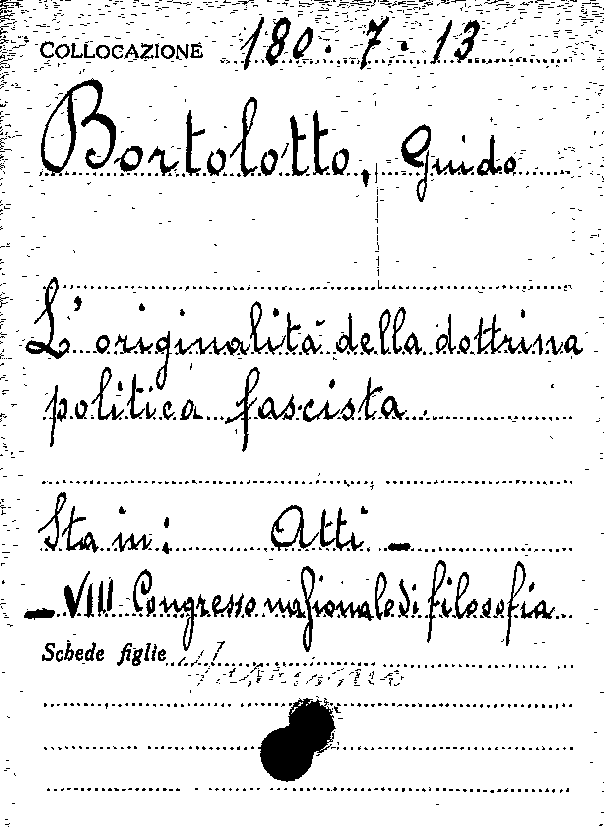 COLLOCAZIONE 180.7.13
Bortolotto, Guido
L'originalità della dottrina
politica fascista.
Sta in: Atti -
- VIII Congresso nazionale di filosofia
Schede figlie